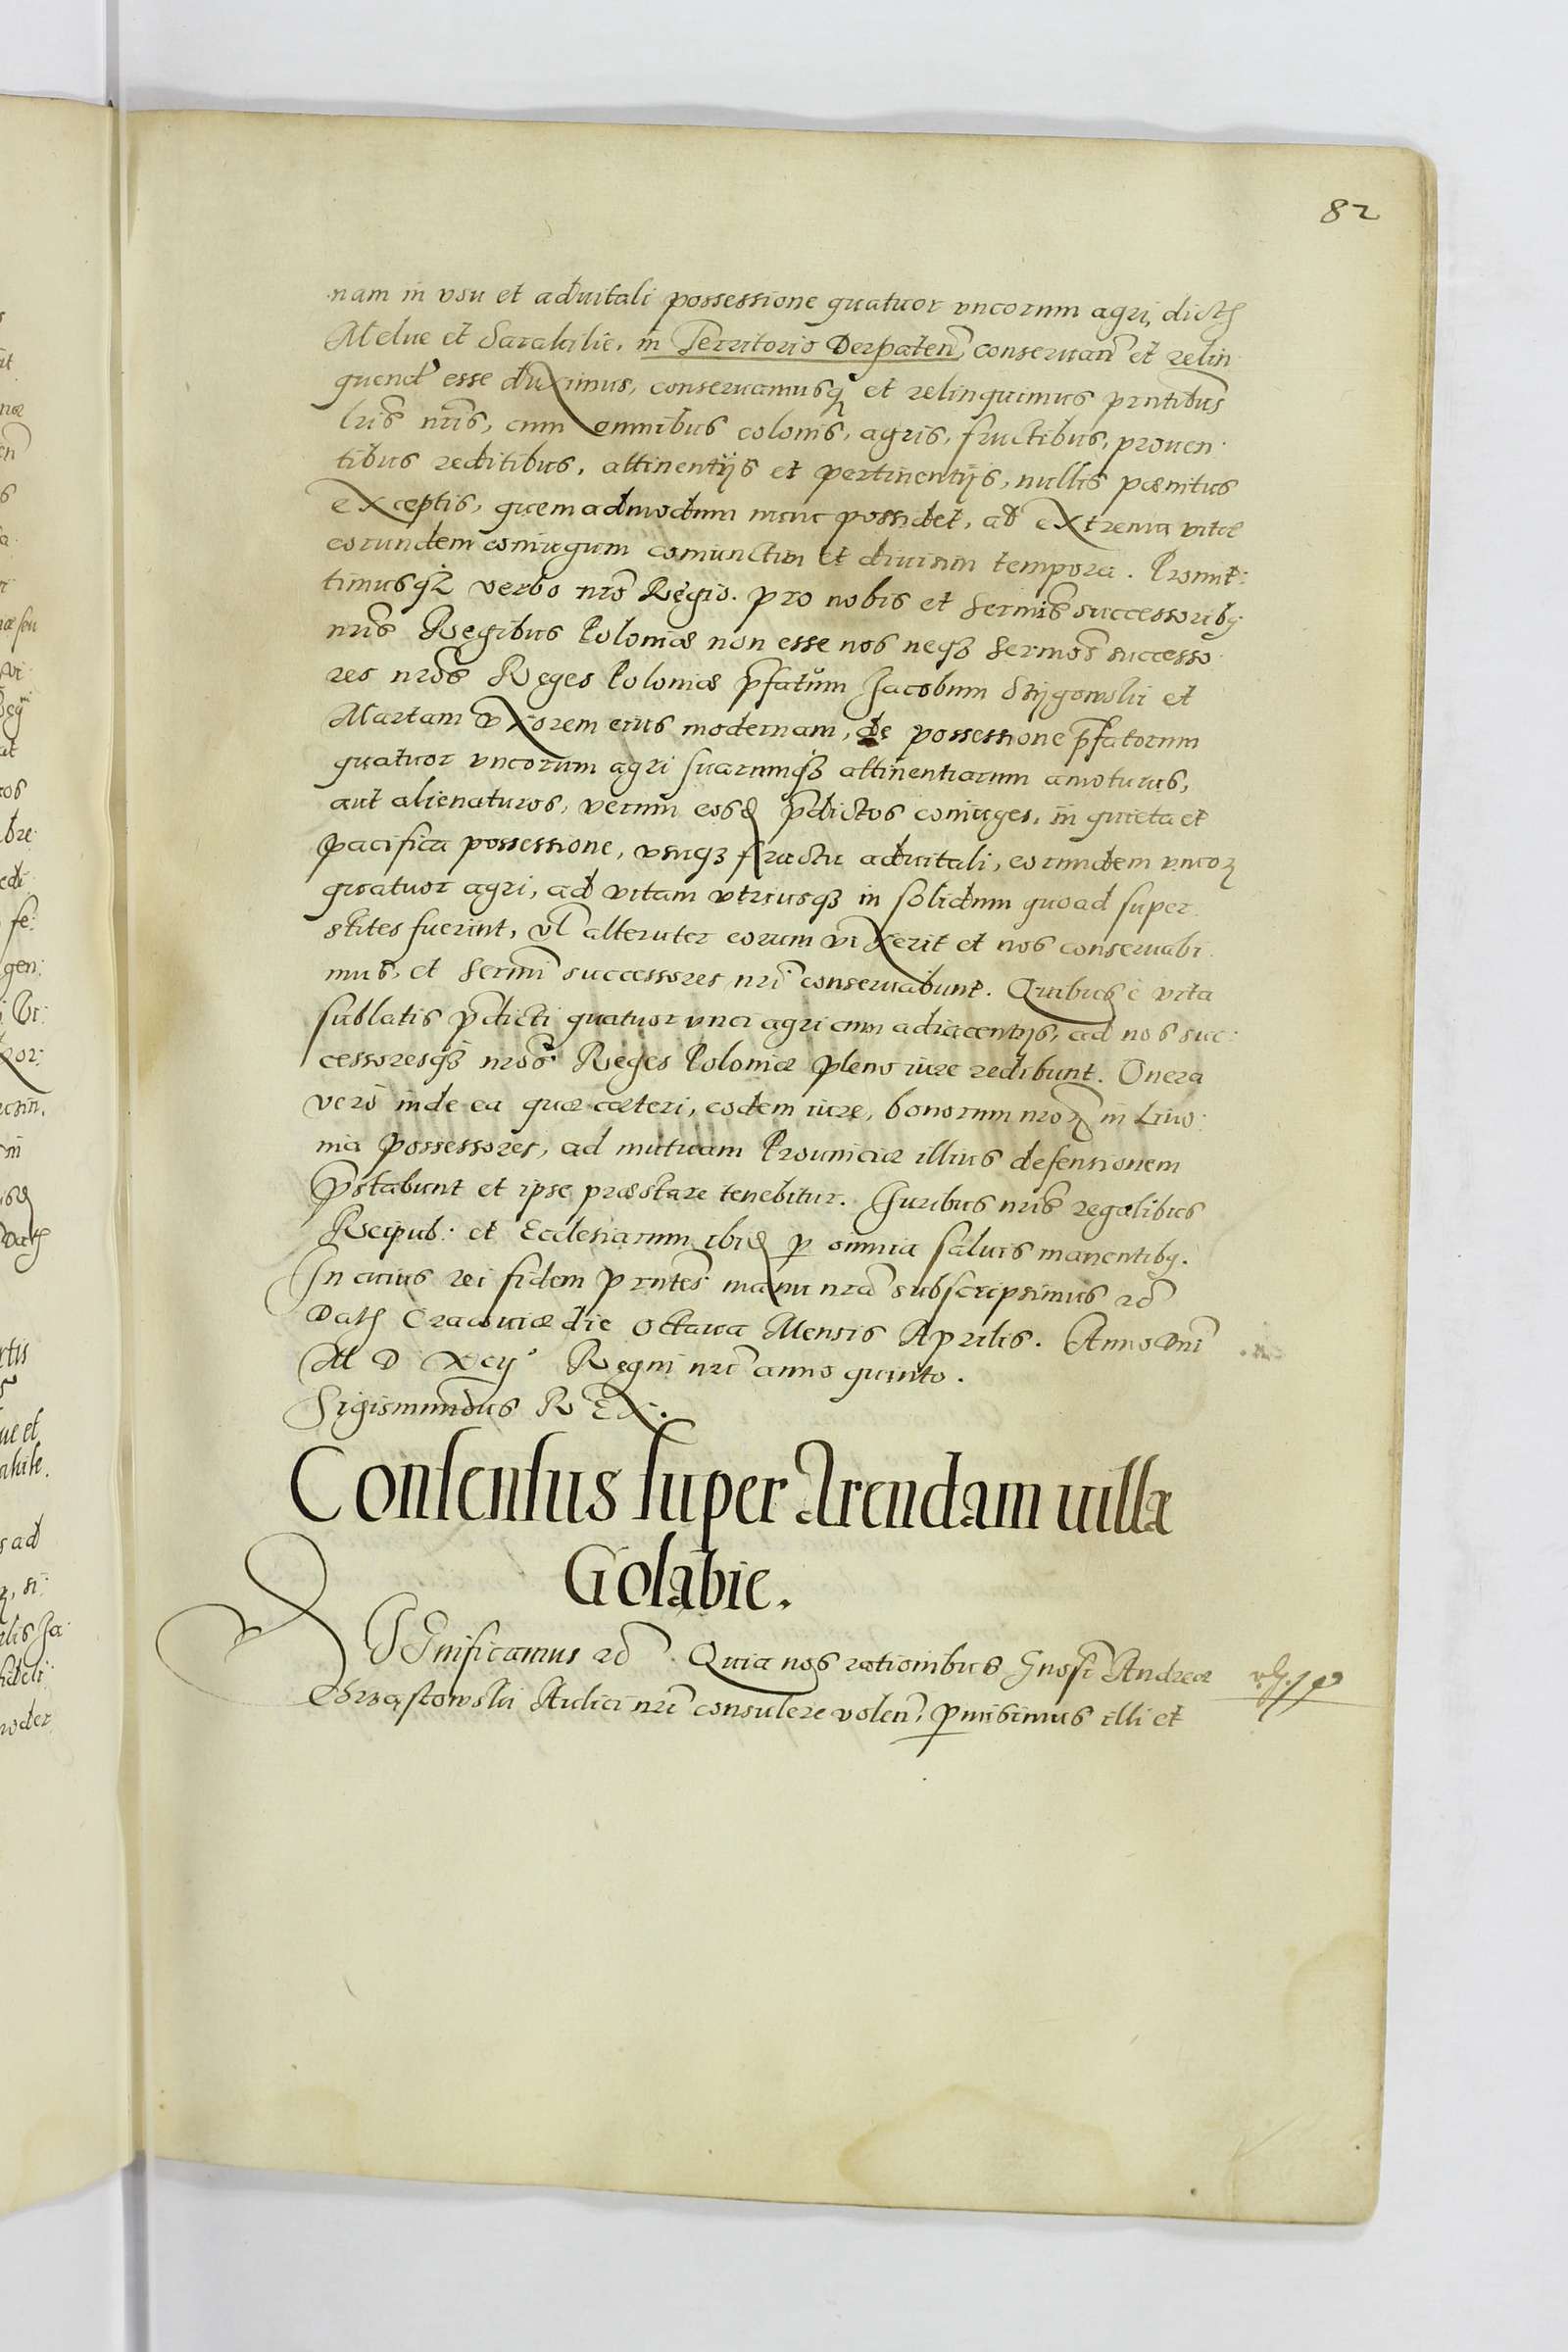 82
nam in vsu et aduitali possessione quatuor vncorum agri, dict
Melue et Sarakilie, in Territorio Derpaten, conseruan et relin
quend esse duximus, conseruamusq et relinquimus pntibus
lris nris, cum omnibus colonis, agris, fructibus, prouen
tibus reditibus, attinentijs et pertinentijs, nullis pænitus
exceptis, quemadmodum nunc possidet, ad extrema vitæ
eorundem coniugum coniunctim et diuisim tempora. Promit:
timusq verbo nro Regio. pro nobis et Sermis successorib
nris Regibus Poloniæ non esse nos neq Sermos successo
res nros Reges Poloniæ pfatum Jacobum et
Martam vxorem eius modernam, de possessione pfatorum
quatuor vncorum agri suarumq attinentiarum amoturus,
aut alienaturos, verum eosd pdictos coniuges, in quieta et
pacifica possessione, vsuq fructu aduitali, eorundem vncor
quatuor agri, ad vitam vtriusq in solidum quoad super
stites fuerint, vl alteruter eorum vixerit et nos conseruabi
mus, et Sermi successores nri conseruabunt. Quibus è vita
sublatis pdicti quatuor vnci agri cum adiacentijs, ad nos suc:
cessoresq nros Reges Poloniæ pleno iure redibunt. Onera
verò inde ea quæ cæteri, eodem iure, bonorum nror in Liuo
nia possessores, ad mutuam Prouinciæ illius defensionem
pstabunt et ipse præstare tenebitur. Juribus nris regalibus
Reipub: et Ecclesiarum ibid p omnia saluis manentib.
In cuius rei fidem pntes manu nra subscripsimus
Dat Cracouiæ die octaua Mensis Aprilis. Anno Dni
M D XCij Regni nri anno quinto.
Sigismundus REX.
Consensus super Arendam uillæ
Golabie.
SIgnificamus Quia nos rationibus Gnosi Andreæ
Chrząstowski Aulici nri consulere volen, pmisimus illi et